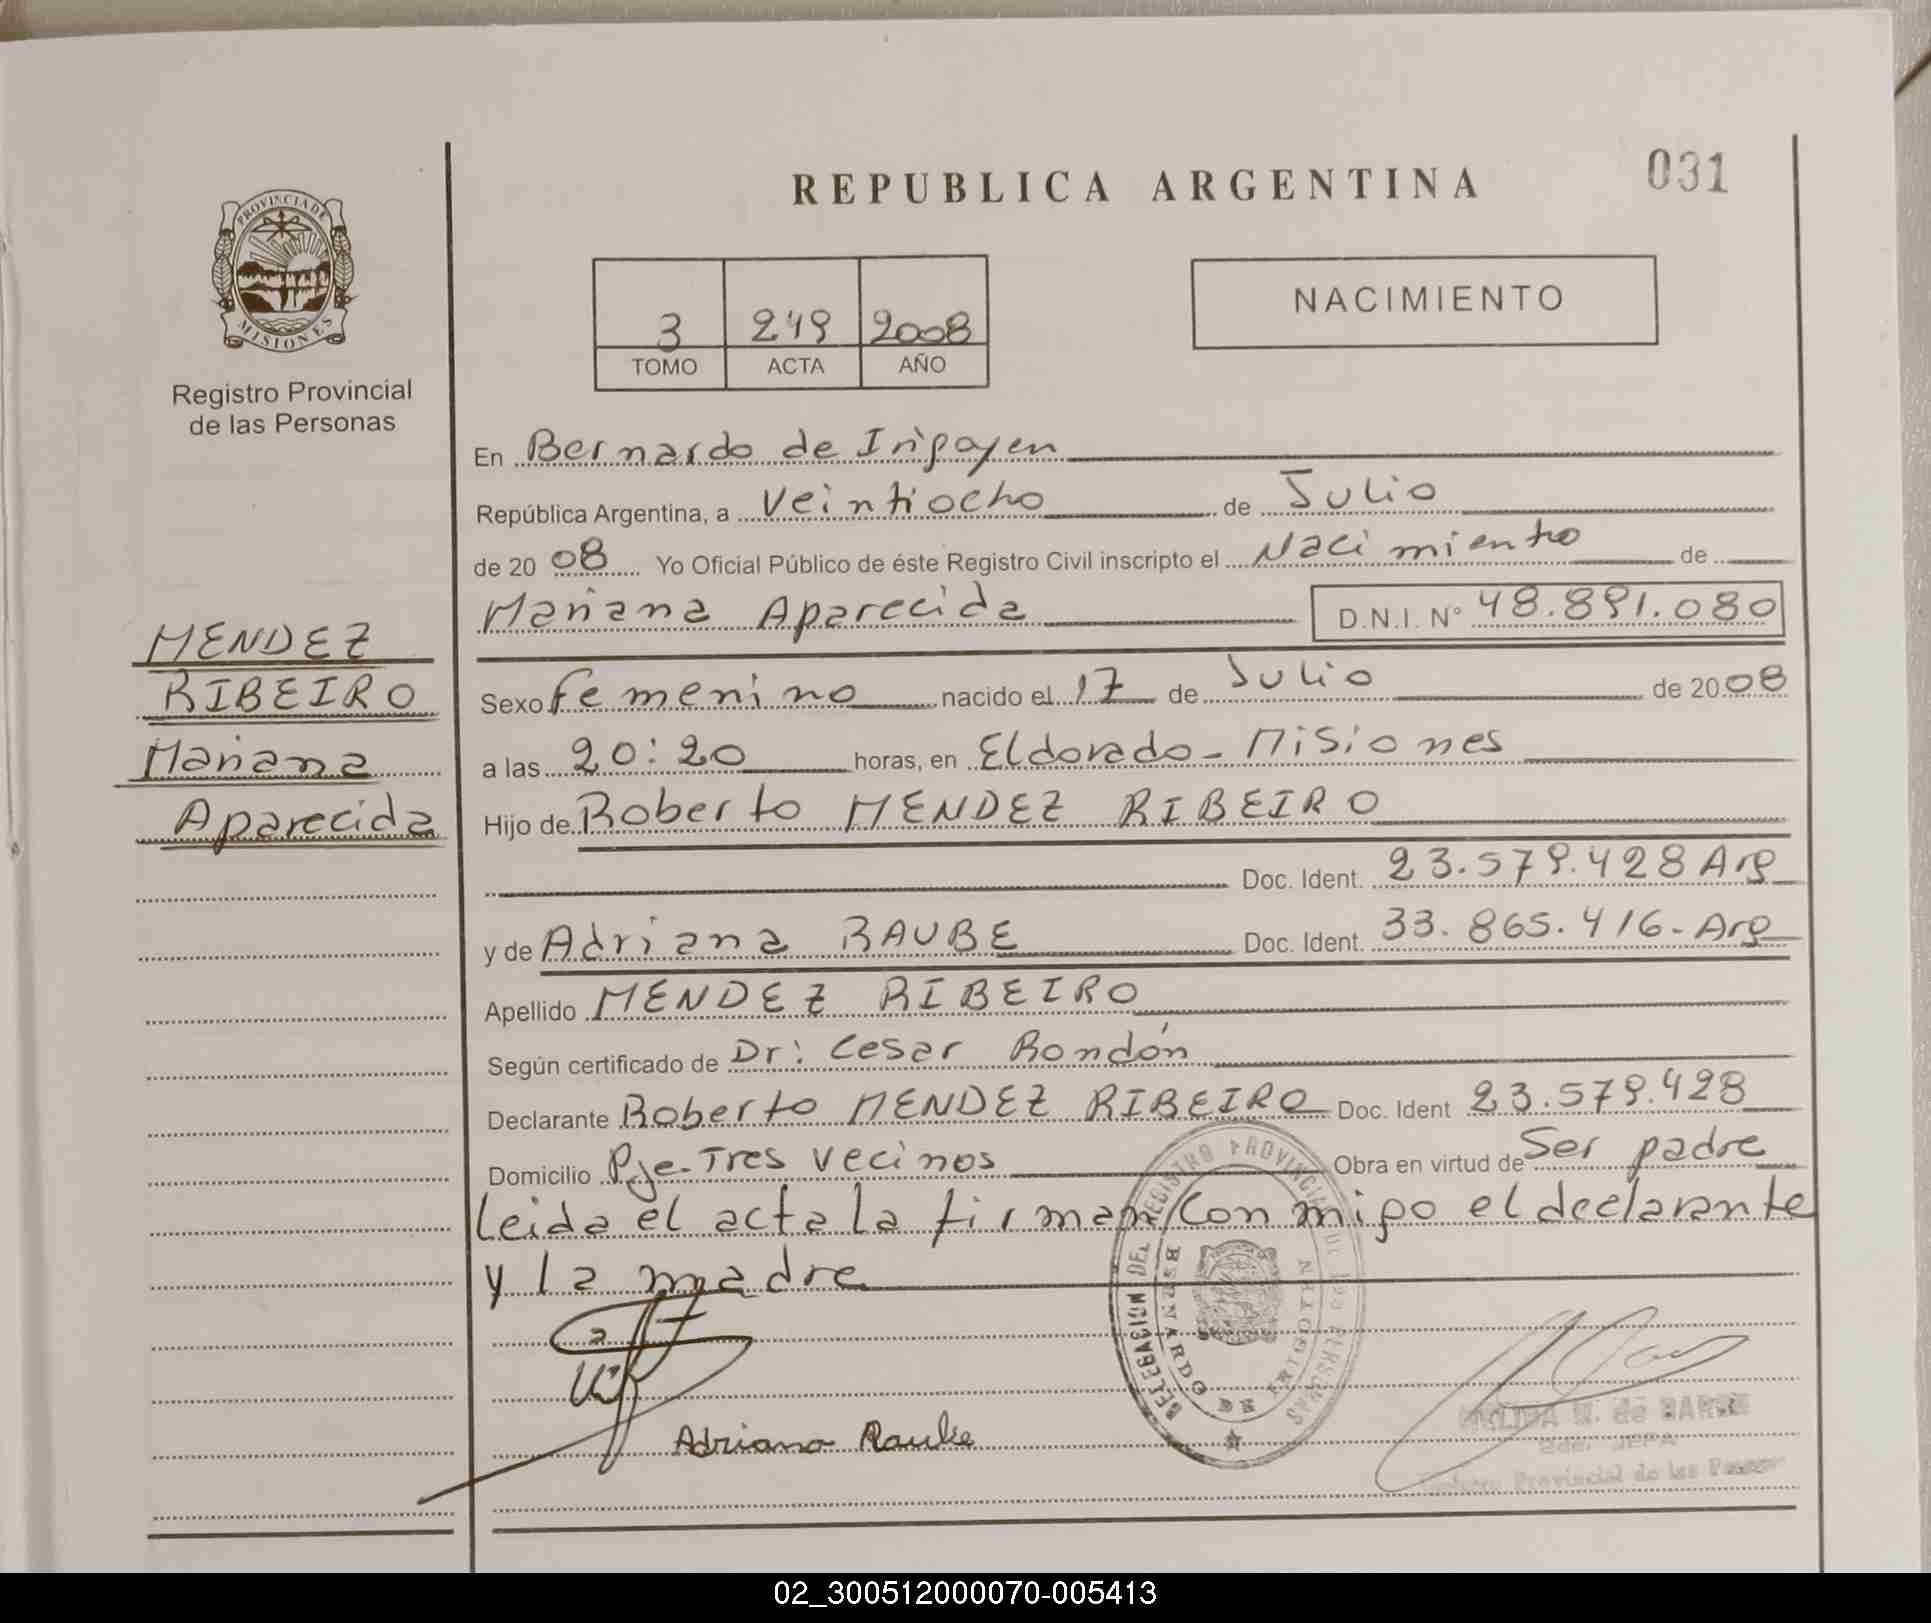 REPUBLICA ARGENTINA
031
PROVINCIA DE
MISIONES
Registro Provincial
de las Personas
3 249 2008
TOMO ACTA AÑO
NACIMIENTO
En Bernardo de Irigoyen
República Argentina, a Veintiocho de Julio
de 20 08 Yo Oficial Público de éste Registro Civil inscripto el Nacimiento de
Mariana Aparecida D.N.I. Nº 48.891.080
MENDEZ
RIBEIRO
Mariana
Aparecida
Sexo Femenino nacido el 17 de Julio de 20 08
a las 20:20 horas, en Eldorado - Misiones
Hijo de Roberto MENDEZ RIBEIRO
Doc. Ident. 23.579.428 Arg
y de Adriana RAUBE Doc. Ident. 33.865.416- Arg
Apellido MENDEZ RIBEIRO
Según certificado de Dr: Cesar Rondón
Declarante Roberto MENDEZ RIBEIRO Doc. Ident 23.579.428
Domicilio Pje. Tres Vecinos Obra en virtud de Ser padre
Leida el acta la firman con migo el declarante
y la madre
DELEGACION DEL REGISTRO PROVINCIAL DE LAS PERSONAS
BERNARDO DE IRIGOYEN
Adriana Raube
de
Provincial de las
02_300512000070-005413